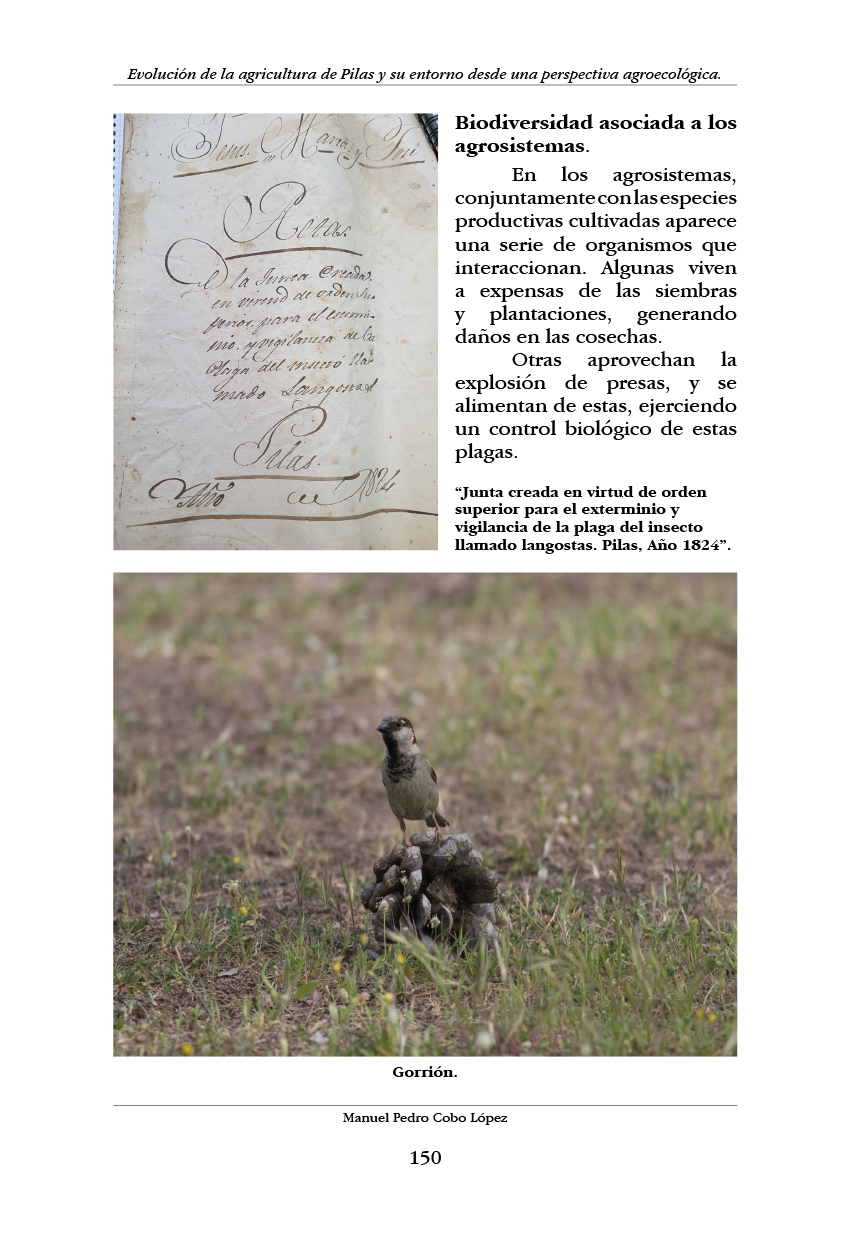 Evolución de la agricultura de Pilas y su entorno desde una perspectiva agroecológica.
Jesus, Maria, y José
Actas.
De la Junta Creada
en virtud de orden Su-
perior, para el extermi-
nio, y vigilancia de la
Plaga del insecto lla-
mado Langosta
Pilas.
Año de 1824
Biodiversidad asociada a los
agrosistemas.
En los agrosistemas,
conjuntamente con las especies
productivas cultivadas aparece
una serie de organismos que
interaccionan. Algunas viven
a expensas de las siembras
y plantaciones, generando
daños en las cosechas.
Otras aprovechan la
explosión de presas, y se
alimentan de estas, ejerciendo
un control biológico de estas
plagas.
“Junta creada en virtud de orden
superior para el exterminio y
vigilancia de la plaga del insecto
llamado langostas. Pilas, Año 1824”.
Gorrión.
Manuel Pedro Cobo López
150